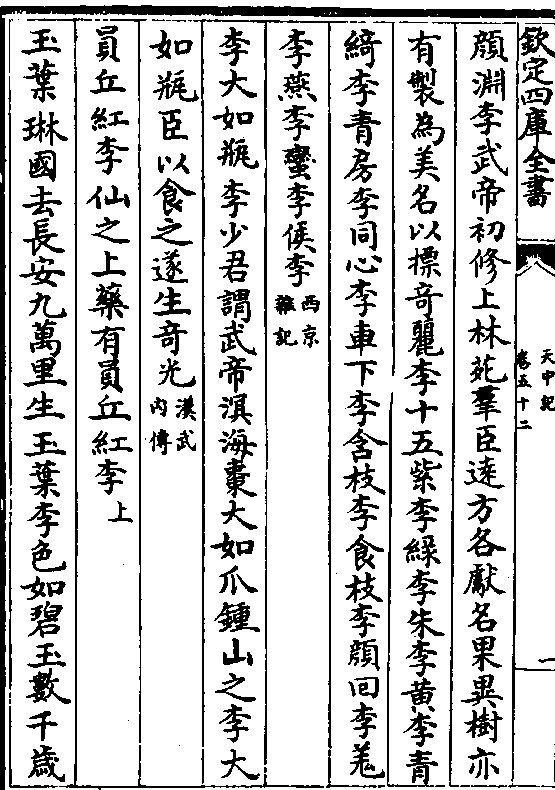 欽定四庫全書
天中記
卷五十二
一
顔淵李武帝初修上林苑羣臣逺方各獻名果異樹亦
有製為美名以摽竒麗李十五紫李緑李朱李黄李青
綺李青房李同心李車下李含枝李食枝李顔回李羗
李燕李蠻李侯李西京雜記
李大如瓶 李少君謂武帝溟海棗大如瓜鍾山之李大
如瓶臣以食之遂生奇光漢武内傳
員丘紅李 仙之上藥有員丘紅李上
玉葉 琳國去長安九萬里生玉葉李色如碧玉數千歳